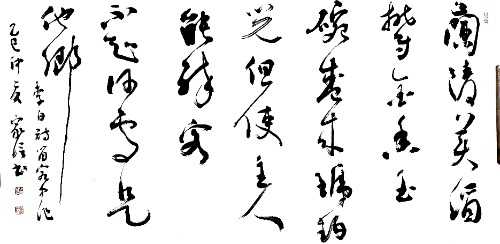 蘭陵美酒
鬱金香玉
碗盛來琥珀
光但使主人
能醉客
不知何處是
他鄉
李白詩客中作
乙巳仲夏家書